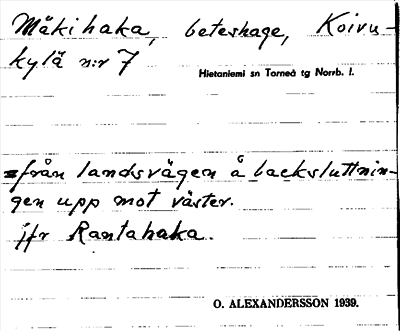 Mäkihaka, beteshage, Koivu-
kylä n:r 7
Hietaniemi sn Torneå tg Norrb. l.
=från landsvägen å backsluttnin-
gen upp mot väster.
jfr Rantahaka.
O. ALEXANDERSSON 1939.